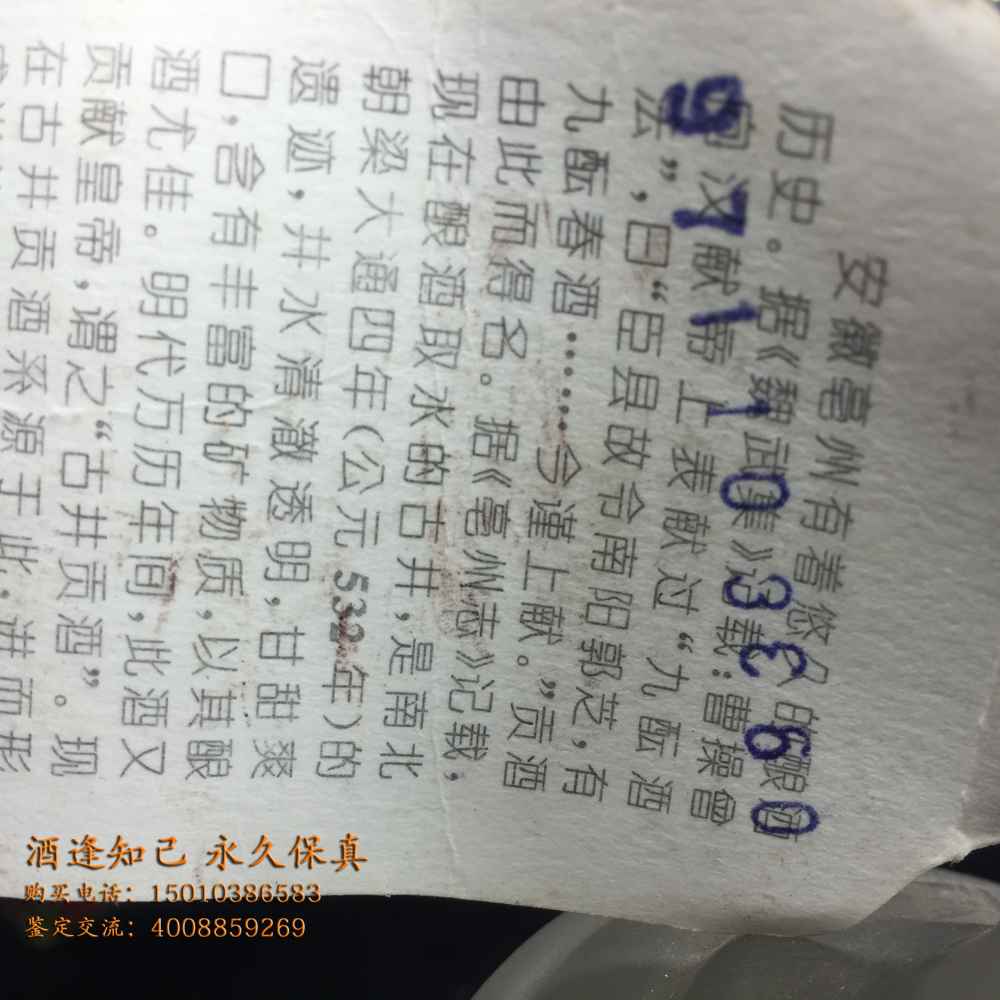 安徽亳州有着悠久的酿酒
历史。据《魏武集》记载:曹操曾
向汉献帝上表献过“九酝酒
法”,曰“臣县故令南阳郭芝,有
九酝春酒……今谨上献。”贡酒
由此而得名。据《亳州志》记载,
现在酿酒取水的古井,是南北
朝梁大通四年(公元532年)的
遗迹,井水清澈透明,甘甜爽
口,含有丰富的矿物质,以其酿
酒尤佳。明代万历年间,此酒又
贡献皇帝,谓之“古井贡酒”。现
在古井贡酒系源于此,进而形
971103360
酒逢知己 永久保真
购买电话：15010386583
鉴定交流：4008859269